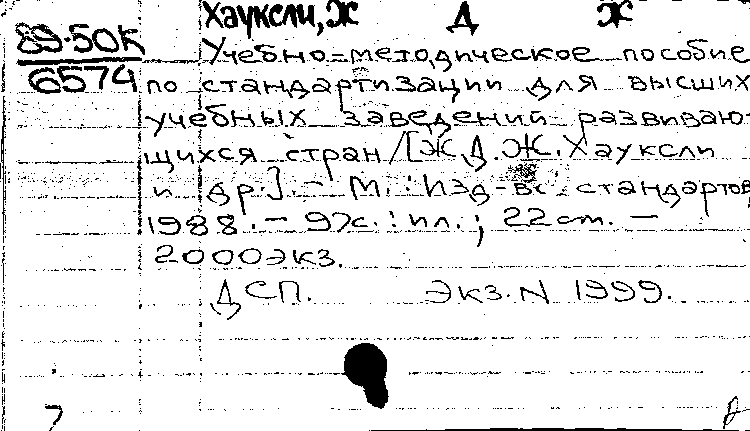 Хауксли, Ж Д Ж
89-50К
6574
Учебно-методическое пособие
по стандартизации для высших
учебных заведений развиваю-
щихся стран/[Ж.Д.Ж.Хауксли
и др.]. - М.: Изд-во стандартов,
1988. - 97с.: ил.; 22 cm. -
2000экз.
ДСП. Экз. N 1999.